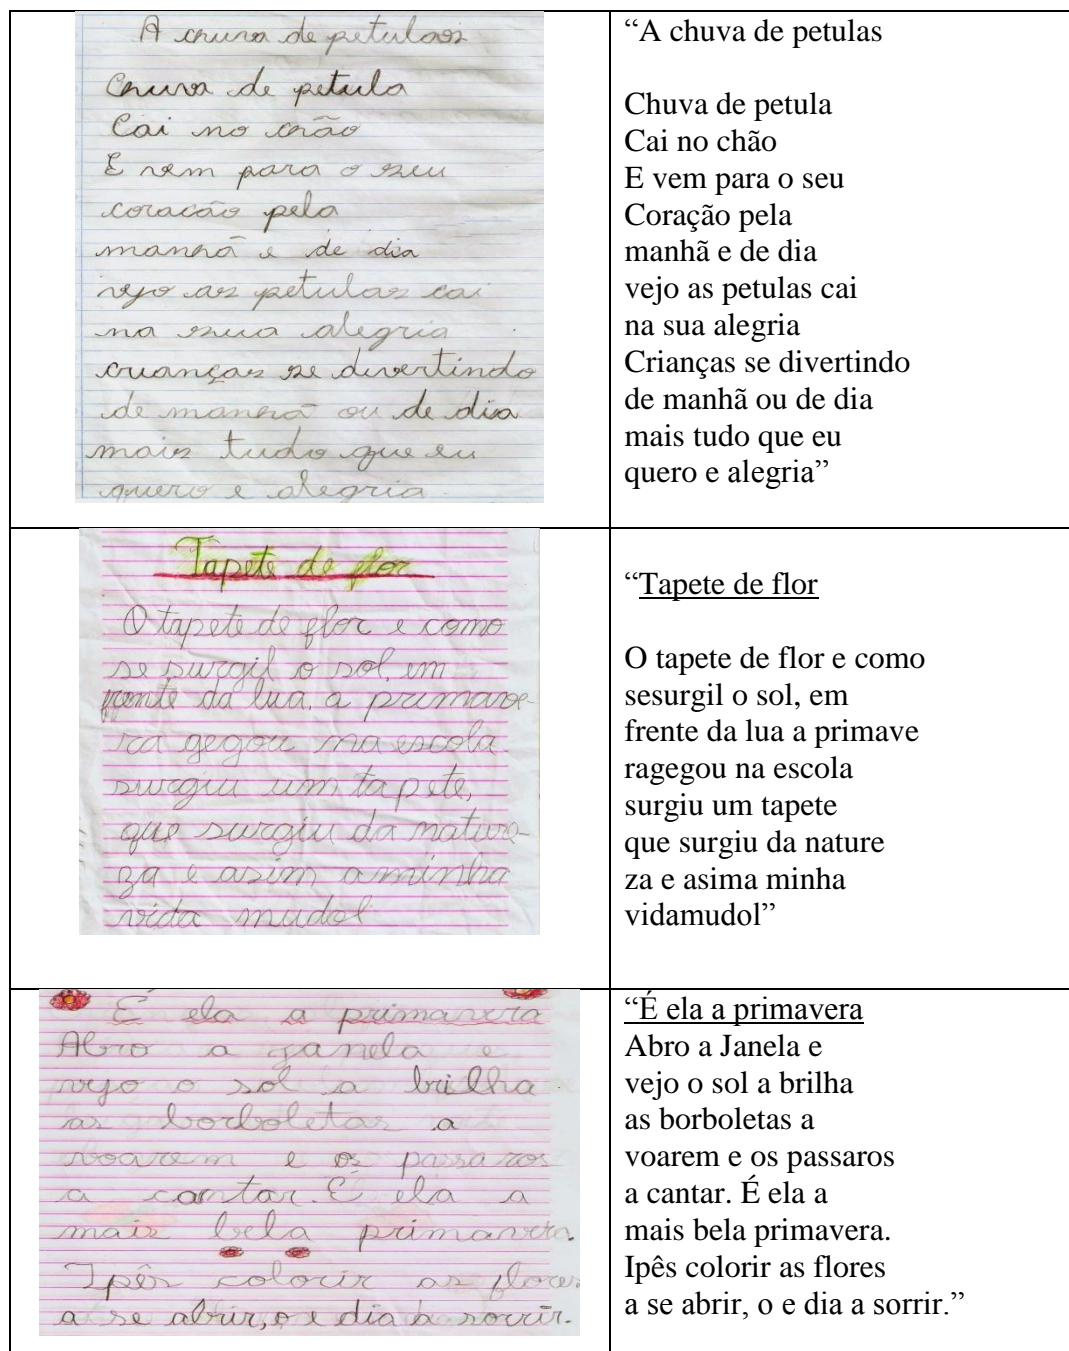 A chuva de petulas
Chuva de petula
Cai no chão
E vem para o seu
coracão pela
manhã e de dia
vejo as petulas cai
na sua alegria
crianças se divertindo
de manhã ou de dia
mais tudo que eu
quero e alegria.
“A chuva de petulas
Chuva de petula
Cai no chão
E vem para o seu
Coração pela
manhã e de dia
vejo as petulas cai
na sua alegria
Crianças se divertindo
de manhã ou de dia
mais tudo que eu
quero e alegria”
Tapete de flor
O tapete de flor e como
se surgil o sol, em
frente da lua, a primave-
ra gegou na escola
surgiu um tapete,
que surgiu da nature-
za e asim a minha
vida mudol
“Tapete de flor
O tapete de flor e como
sesurgil o sol, em
frente da lua a primave
ragegou na escola
surgiu um tapete
que surgiu da nature
za e asima minha
vidamudol”
É ela a primavera
Abro a janela e
vejo o sol a brilha
as borboletas a
voarem e os passaros
a cantar. É ela a
mais bela primavera.
Ipês colorir as flores
a se abrir, o e dia a sorrir.
“É ela a primavera
Abro a Janela e
vejo o sol a brilha
as borboletas a
voarem e os passaros
a cantar. É ela a
mais bela primavera.
Ipês colorir as flores
a se abrir, o e dia a sorrir.”